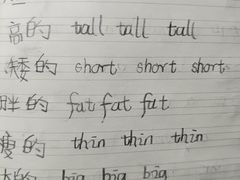 高的 tall tall tall
矮的 short short short
胖的 fat fat fat
瘦的 thin thin thin
的 big big big